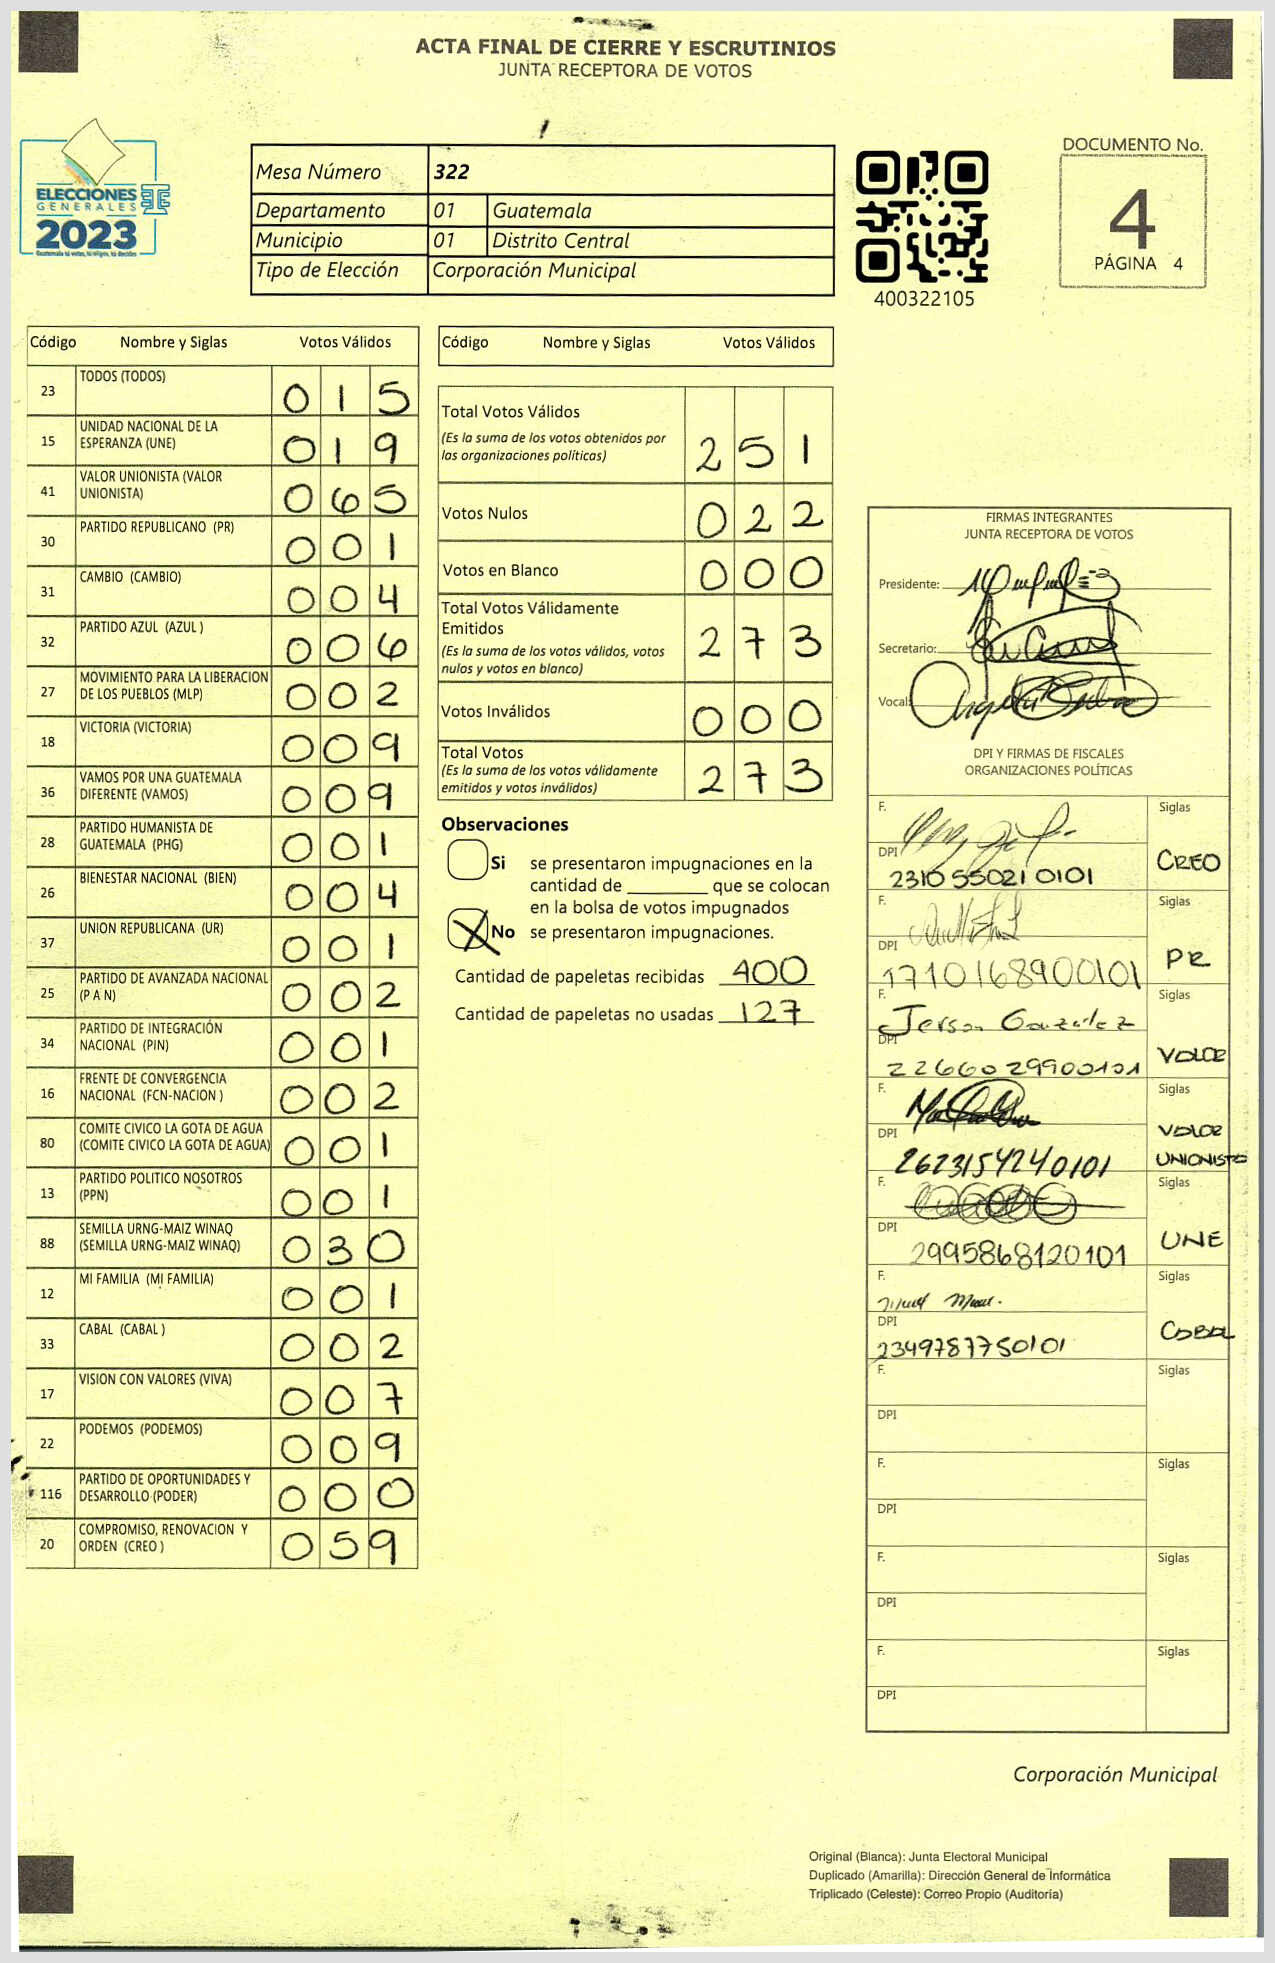 ACTA FINAL DE CIERRE Y ESCRUTINIOS
JUNTA RECEPTORA DE VOTOS
ELECCIONES
GENERALES
2023
Mesa Número 322
Departamento 01 Guatemala
Municipio 01 Distrito Central
Tipo de Elección Corporación Municipal
400322105
DOCUMENTO No.
4
PÁGINA 4
Código Nombre y Siglas Votos Válidos
23 TODOS (TODOS) 015
15 UNIDAD NACIONAL DE LA
ESPERANZA (UNE) 019
41 VALOR UNIONISTA (VALOR
UNIONISTA) 065
30 PARTIDO REPUBLICANO (PR) 001
31 CAMBIO (CAMBIO) 004
32 PARTIDO AZUL (AZUL ) 006
27 MOVIMIENTO PARA LA LIBERACION
DE LOS PUEBLOS (MLP) 002
18 VICTORIA (VICTORIA) 009
36 VAMOS POR UNA GUATEMALA
DIFERENTE (VAMOS) 009
28 PARTIDO HUMANISTA DE
GUATEMALA (PHG) 001
26 BIENESTAR NACIONAL (BIEN) 004
37 UNION REPUBLICANA (UR) 001
25 PARTIDO DE AVANZADA NACIONAL
(P A N) 002
34 PARTIDO DE INTEGRACIÓN
NACIONAL (PIN) 001
16 FRENTE DE CONVERGENCIA
NACIONAL (FCN-NACION ) 002
80 COMITE CIVICO LA GOTA DE AGUA
(COMITE CIVICO LA GOTA DE AGUA) 001
13 PARTIDO POLITICO NOSOTROS
(PPN) 001
88 SEMILLA URNG-MAIZ WINAQ
(SEMILLA URNG-MAIZ WINAQ) 030
12 MI FAMILIA (MI FAMILIA) 001
33 CABAL (CABAL ) 002
17 VISION CON VALORES (VIVA) 007
22 PODEMOS (PODEMOS) 009
116 PARTIDO DE OPORTUNIDADES Y
DESARROLLO (PODER) 000
20 COMPROMISO, RENOVACION Y
ORDEN (CREO ) 059
Código Nombre y Siglas Votos Válidos
Total Votos Válidos
(Es la suma de los votos obtenidos por
las organizaciones políticas) 251
Votos Nulos 022
Votos en Blanco 000
Total Votos Válidamente
Emitidos
(Es la suma de los votos válidos, votos
nulos y votos en blanco) 273
Votos Inválidos 000
Total Votos
(Es la suma de los votos válidamente
emitidos y votos inválidos) 273
Observaciones
Si se presentaron impugnaciones en la
cantidad de ________ que se colocan
en la bolsa de votos impugnados
X No se presentaron impugnaciones.
Cantidad de papeletas recibidas 400
Cantidad de papeletas no usadas 127
FIRMAS INTEGRANTES
JUNTA RECEPTORA DE VOTOS
Presidente:
Secretario:
Vocal:
DPI Y FIRMAS DE FISCALES
ORGANIZACIONES POLÍTICAS
F. Siglas
DPI CREO
2310550210101
F. Siglas
DPI PR
1710168900101
F. Siglas
Jerson Gonzalez
DPI VALOR
2266029900101
F. Siglas
DPI VALOR
2623154240101 UNIONISTA
F. Siglas
DPI UNE
2995868120101
F. Siglas
DPI CABAL
2349787750101
F. Siglas
DPI
F. Siglas
DPI
F. Siglas
DPI
F. Siglas
DPI
Corporación Municipal
Original (Blanca): Junta Electoral Municipal
Duplicado (Amarilla): Dirección General de Informática
Triplicado (Celeste): Correo Propio (Auditoría)